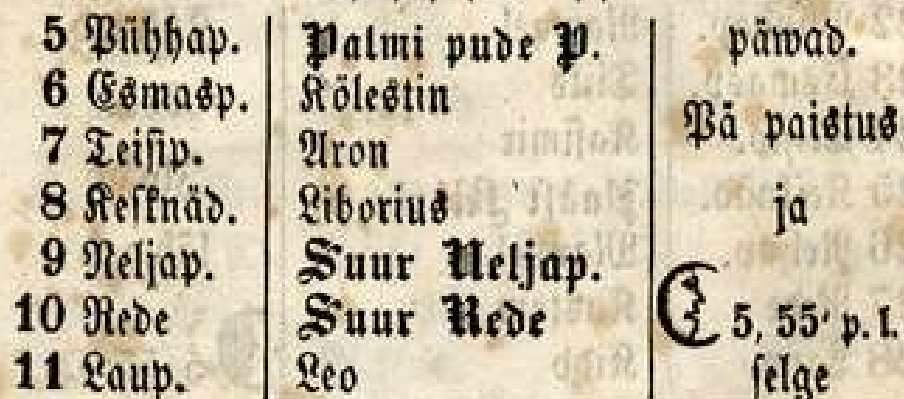 5 Pühhap. Palmi pude P. päwad.
6 Esmasp. Kölestin
Pä paistus
7 Teisip. Aron
8 Keſknäd. Liborius ja
9 Neljap. Suur Neljap.
10 Rede Suur Rede 5, 55' p. l.
11 Laup. Leo selge